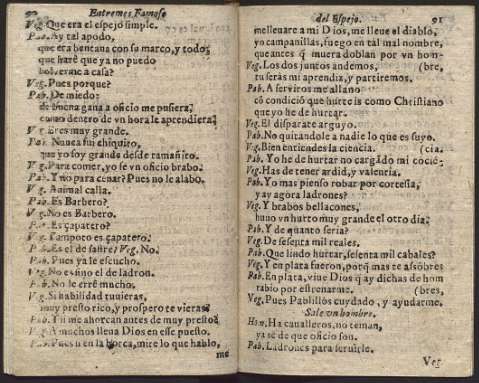 90 Entremes Famoso
Veg. Que era el espejo simple.
Pab. Ay tal apodo,
que era ventana con su marco, y todo;
que harè que ya no puedo
bolverme a casa?
Veg. Pues porque?
Pab. De miedo:
de buena gana a oficio me pusiera,
como dentro de vn hora le aprendiera;
Veg. Eres muy grande.
Pab. Nunca fui chiquito,
que yo soy grande desde tamañito.
Veg. Para comer, yo sè vn oficio brabo.
Pab. Y no para cenar? Pues no le alabo.
Veg. Animal calla.
Pab. Es Barbero?
Veg. No es Barbero.
Pab. Es çapatero?
Veg. Tampoco es çapatero.
Pab. Es el de sastre? Veg. No.
Pab. Pues ya le escucho.
Veg. No es sino el de ladron.
Pab. No le errè mucho.
Veg. Si habilidad tuuieras,
muy presto rico, y prospero te vieras?
Pab. Y si me ahorcan antes de muy presto?
Veg. A muchos lleua Dios en esse puesto.
Pab. Pues si en la horca, mire lo que hablo,
me
del Espejo. 91
melleuare a mi Dios, me lleue el diablo,
yo campanillas, fuego en tal mal nombre,
que antes q̃ muera doblan por vn hom-
Veg. Los dos juntos andemos, (bre,
tu seràs mi aprendiz, y partiremos.
Pab. A serviros me allano
cõ condiciõ que hurteis como Christiano
que yo he de hurtar.
Veg. El disparate arguyo.
Pab. No quitandole a nadie lo que es suyo.
Veg. Bien entiendes la ciencia. (cia.
Pab. Yo he de hurtar no cargãdo mi cõciē-
Veg. Has de tener ardid, y valencia.
Pab. Yo mas pienso robar por cortesia,
y ay agora ladrones?
Veg. Y brabos bellacones,
huuo vn hurto muy grande el otro dia.
Pab. Y de quanto seria?
Veg. De sesenta mil reales.
Pab. Que lindo hurtar, sesenta mil cabales?
Veg. Y en plata fueron, porq̃ mas te assõbres
Pab. En plata, viue Dios q̃ ay dichas de hom
rabio por estrenarme. (bres,
Veg. Pues Pablillos cuydado, y ayudarme.
Sale vn hombre.
Hom. Ha caualleros, no teman,
ya sè de que oficio son.
Pab. Ladrones para seruirle.
Veg